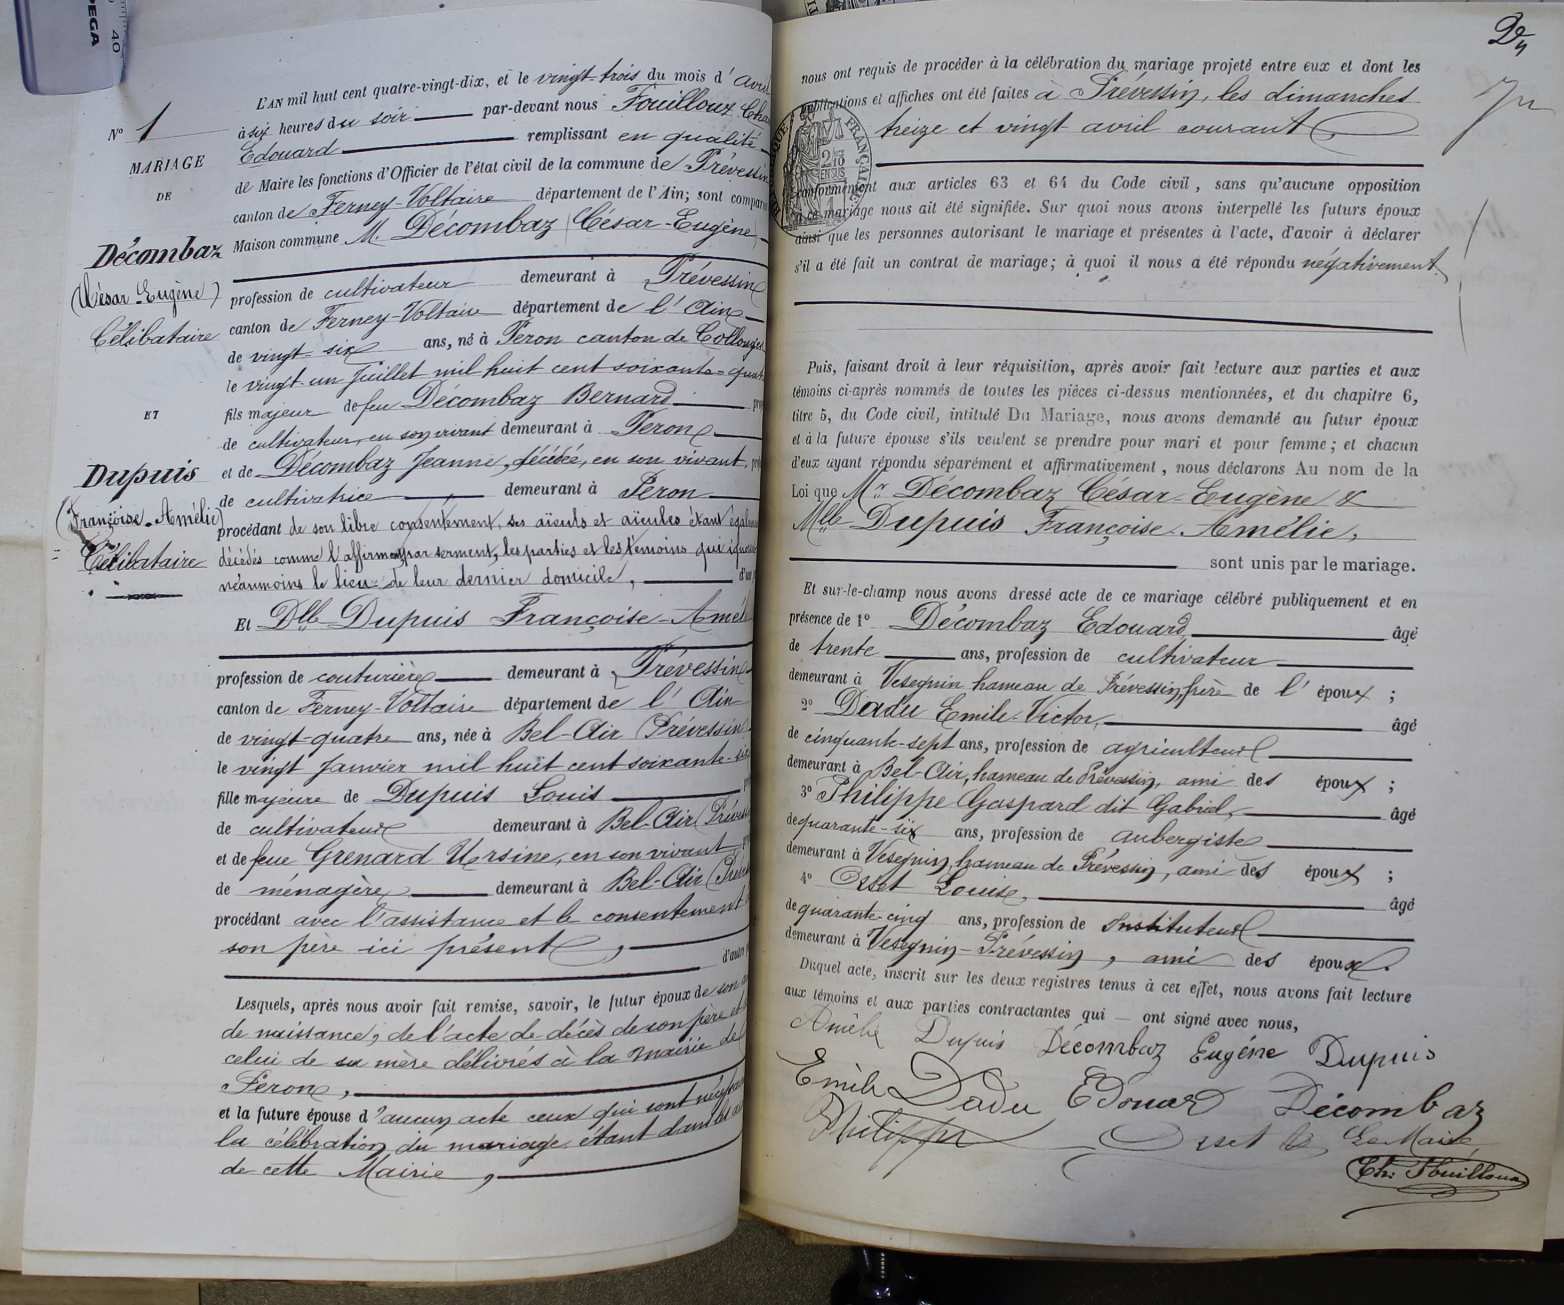 PEGA
40
N° 1
MARIAGE
DE
Décombaz
(César Eugène)
Célibataire
ET
Dupuis
(Françoise-Amélie)
Célibataire
L'AN mil huit cent quatre-vingt-dix, et le vingt-trois du mois d'avril
à six heures du soir par-devant nous Fouilloux
Edouard remplissant en qualité
de Maire les fonctions d'Officier de l'état civil de la commune de Prévessin
canton de Ferney-Voltaire département de l'Ain; sont
Maison commune M. Décombaz César-Eugène,
profession de cultivateur demeurant à Prévessin
canton de Ferney-Voltaire département de l'Ain
de vingt-six ans, né à Péron canton de Collonges
le vingt un Juillet mil huit cent soixante-
fils majeur de feu Décombaz Bernard
de cultivateur, en son vivant demeurant à Péron
et de Décombaz Jeanne, décédée, en son vivant,
de cultivatrice demeurant à Péron
procédant de son libre consentement, ses aïeuls et aïeules étant
décédés comme l'affirme par serment, les parties et les témoins qui
néanmoins le lieu de leur dernier domicile,
Et Dlle Dupuis Françoise-
profession de couturière demeurant à Prévessin
canton de Ferney-Voltaire département de l'Ain
de vingt-quatre ans, née à Bel-Air (Prévessin
le vingt Janvier mil huit cent soixante-six
fille majeure de Dupuis Louis
de cultivateur demeurant à Bel-Air
et de feue Grenard Ursine, en son vivant
de ménagère demeurant à Bel-Air
procédant avec l'assistance et le consentement
son père ici présent,
d'autre
Lesquels, après nous avoir fait remise, savoir, le futur époux de son
de naissance, de l'acte de décès de son père et
celui de sa mère délivrés à la mairie de
Péron,
et la future épouse d'aucun acte ceux qui sont
la célébration du mariage étant dans les
de cette Mairie,
nous ont requis de procéder à la célébration du mariage projeté entre eux et dont les
publications et affiches ont été faites à Prévessin, les dimanches
treize et vingt avril courant
FRANÇAISE
2/10
EN SUS
conformément aux articles 63 et 64 du Code civil, sans qu'aucune opposition
à ce mariage nous ait été signifiée. Sur quoi nous avons interpellé les futurs époux
ainsi que les personnes autorisant le mariage et présentes à l'acte, d'avoir à déclarer
s'il a été fait un contrat de mariage; à quoi il nous a été répondu négativement
Puis, faisant droit à leur réquisition, après avoir fait lecture aux parties et aux
témoins ci-après nommés de toutes les pièces ci-dessus mentionnées, et du chapitre 6,
titre 5, du Code civil, intitulé Du Mariage, nous avons demandé au futur époux
et à la future épouse s'ils veulent se prendre pour mari et pour femme; et chacun
d'eux ayant répondu séparément et affirmativement, nous déclarons Au nom de la
Loi que Mr Décombaz César-Eugène &
Mlle Dupuis Françoise-Amélie,
sont unis par le mariage.
Et sur-le-champ nous avons dressé acte de ce mariage célébré publiquement et en
présence de 1° Décombaz Edouard, âgé
de trente ans, profession de cultivateur
demeurant à Vesegnin hameau de Prévessin, frère de l'époux;
2° Dadu Emile-Victor, âgé
de cinquante-sept ans, profession de agriculteur
demeurant à Bel-Air, hameau de Prévessin, ami des époux;
3° Philippe Gaspard dit Gabriel, âgé
de quarante-six ans, profession de aubergiste
demeurant à Vesegnin, hameau de Prévessin, ami des époux;
4° Osset Louise, âgé
de quarante-cinq ans, profession de Instituteur
demeurant à Vesegnin-Prévessin, ami des époux.
Duquel acte, inscrit sur les deux registres tenus à cet effet, nous avons fait lecture
aux témoins et aux parties contractantes qui ont signé avec nous,
Amélie Dupuis Décombaz Eugène Dupuis
Emile Dadu Edouard Décombaz
Philippe Osset Le Maire
Ch. Fouilloux